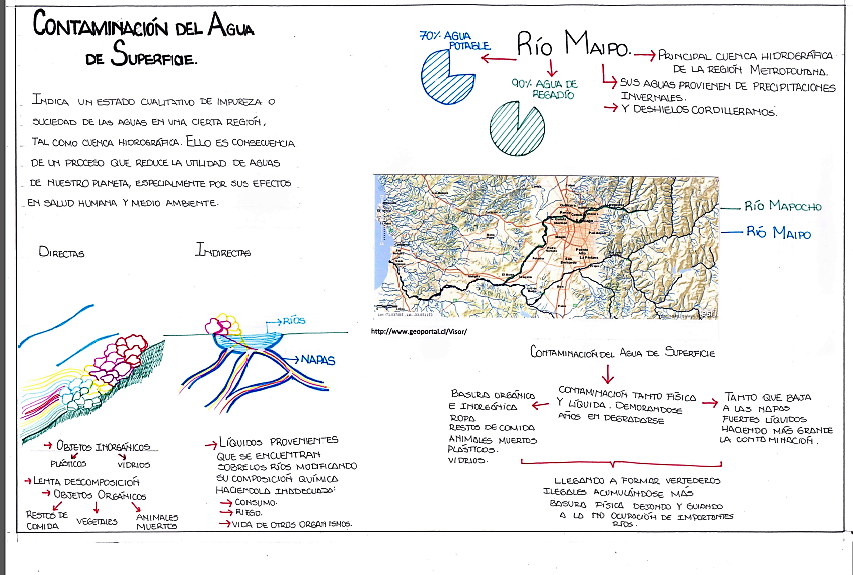 CONTAMINACIÓN DEL AGUA
DE SUPERFICIE.
INDICA UN ESTADO CUALITATIVO DE IMPUREZA O
SUCIEDAD DE LAS AGUAS EN UNA CIERTA REGIÓN,
TAL COMO CUENCA HIDROGRÁFICA. ELLO ES CONSECUENCIA
DE UN PROCESO QUE REDUCE LA UTILIDAD DE AGUAS
DE NUESTRO PLANETA, ESPECIALMENTE POR SUS EFECTOS
EN SALUD HUMANA Y MEDIO AMBIENTE.
DIRECTAS
INDIRECTAS
RÍOS
NAPAS
OBJETOS INORGÁNICOS
PLÁSTICOS
VIDRIOS
LENTA DESCOMPOSICIÓN
OBJETOS ORGÁNICOS
RESTOS DE
COMIDA
VEGETALES
ANIMALES
MUERTOS
LÍQUIDOS PROVENIENTES
QUE SE ENCUENTRAN
SOBRE LOS RÍOS MODIFICANDO
SU COMPOSICIÓN QUÍMICA
HACIENDOLA INADECUADA:
CONSUMO.
RIEGO.
VIDA DE OTROS ORGANISMOS.
70% AGUA
POTABLE
RÍO MAIPO.
90% AGUA DE
REGADÍO
PRINCIPAL CUENCA HIDROGRÁFICA
DE LA REGIÓN METROPOLITANA.
SUS AGUAS PROVIENEN DE PRECIPITACIONES
INVERNALES.
Y DESHIELOS CORDILLERANOS.
RÍO MAPOCHO
RÍO MAIPO
http://www.geoportal.cl/Visor/
CONTAMINACIÓN DEL AGUA DE SUPERFICIE
CONTAMINACIÓN TANTO FÍSICA
Y LÍQUIDA. DEMORANDOSE
AÑOS EN DEGRADARSE
BASURA ORGÁNICA
E INORGÁNICA
ROPA.
RESTOS DE COMIDA
ANIMALES MUERTOS
PLÁSTICOS.
VIDRIOS.
TANTO QUE BAJA
A LAS NAPAS
FUERTES LÍQUIDOS
HACIENDO MÁS GRANDE
LA CONTAMINACIÓN.
LLEGANDO A FORMAR VERTEDEROS
ILEGALES ACUMULÁNDOSE MÁS
BASURA FÍSICA DEJANDO Y GUIANDO
A LA NO OCUPACIÓN DE IMPORTANTES
RÍOS.